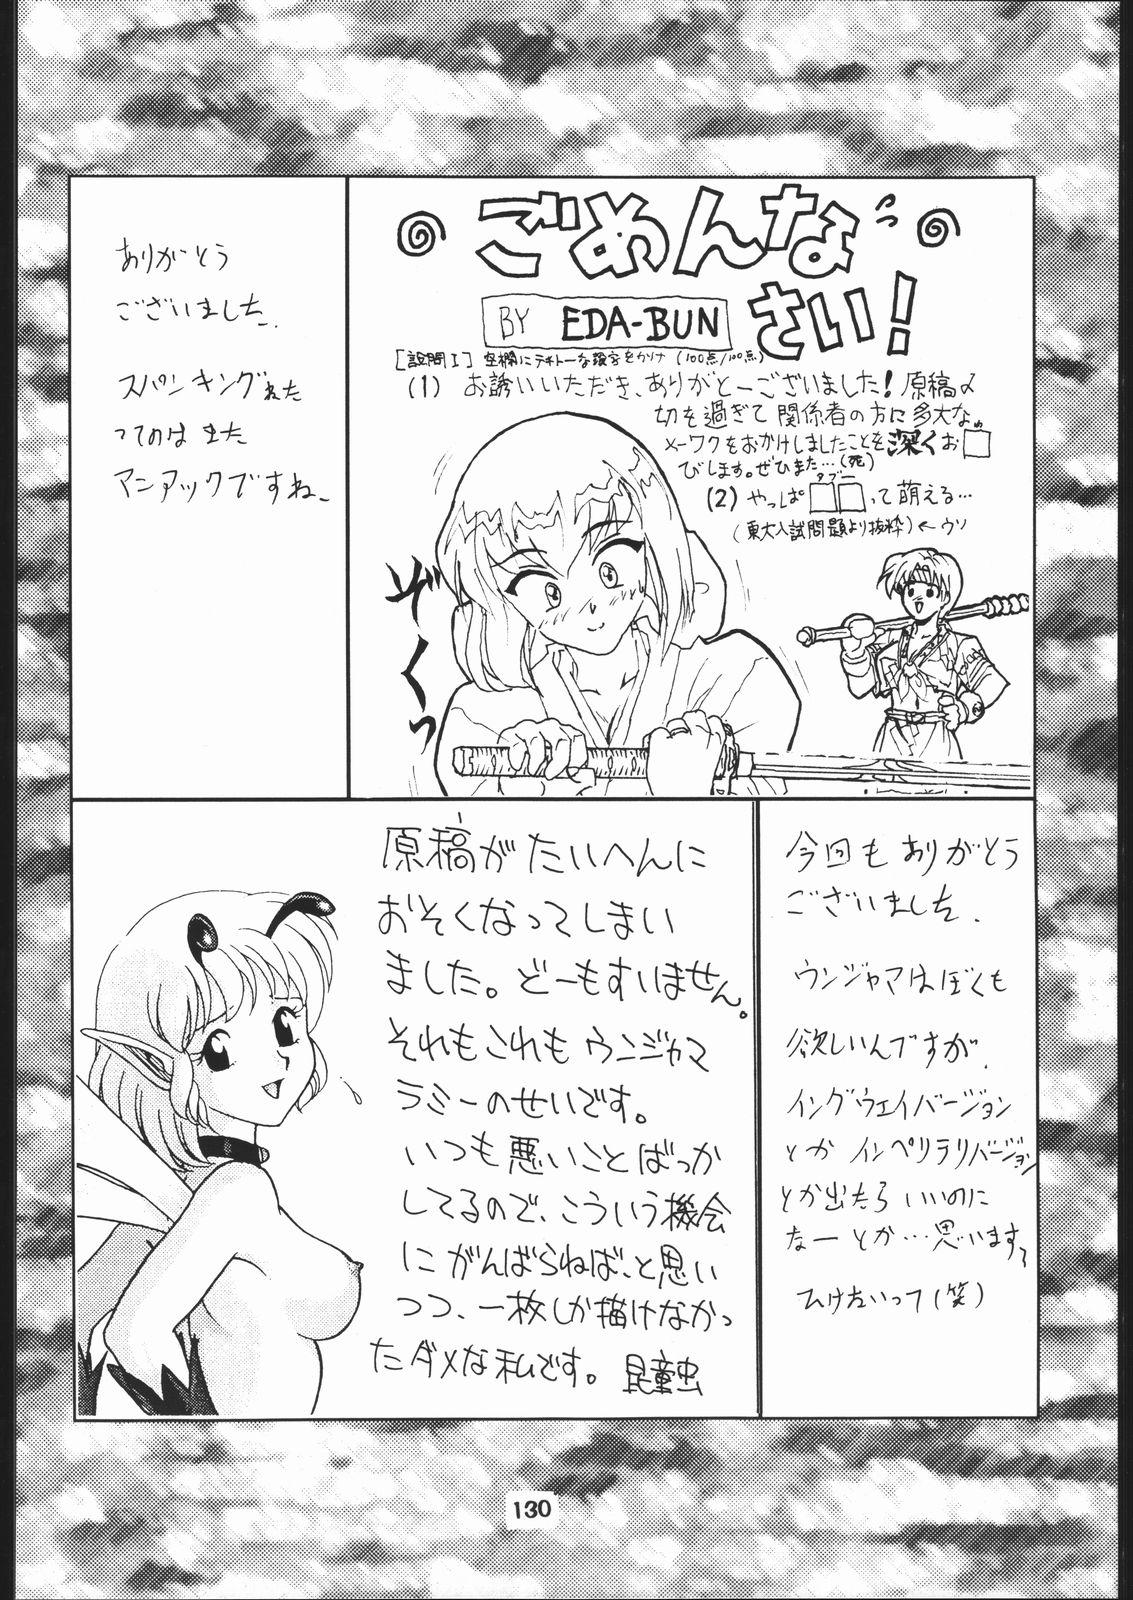 ごめんな
さい!
BY EDA-BUN
[設問I] 空欄にテキトーな漢字をかけ (100点/100点)
(1) お誘いいただき、ありがとーございました! 原稿〆
切を過ぎて関係者の方に多大な
メーワクをおかけしましたことを深くお□
びします。ぜひまた…(死)
タブー
(2) やっぱ□□って萌える…
(東大入試問題より抜粋) ← ウソ
ぞくっ
ありがとう
ございました。
スパンキング
ってのはまた
マニアックですね。
原稿がたいへんに
おそくなってしまい
ました。どーもすいません。
それもこれもウンジャマ
ラミーのせいです。
いつも悪いことばっか
してるので、こういう機会
にがんばらねば、と思い
つつ、一枚しか描けなかっ
たダメな私です。 昆童虫
今回もありがとう
ございました。
ウンジャマはぼくも
欲しいんですが、
イングウェイバージョン
とかインペリテリバージョン
とか出たらいいのに
なーとか…思います
ひけないって(笑)
130